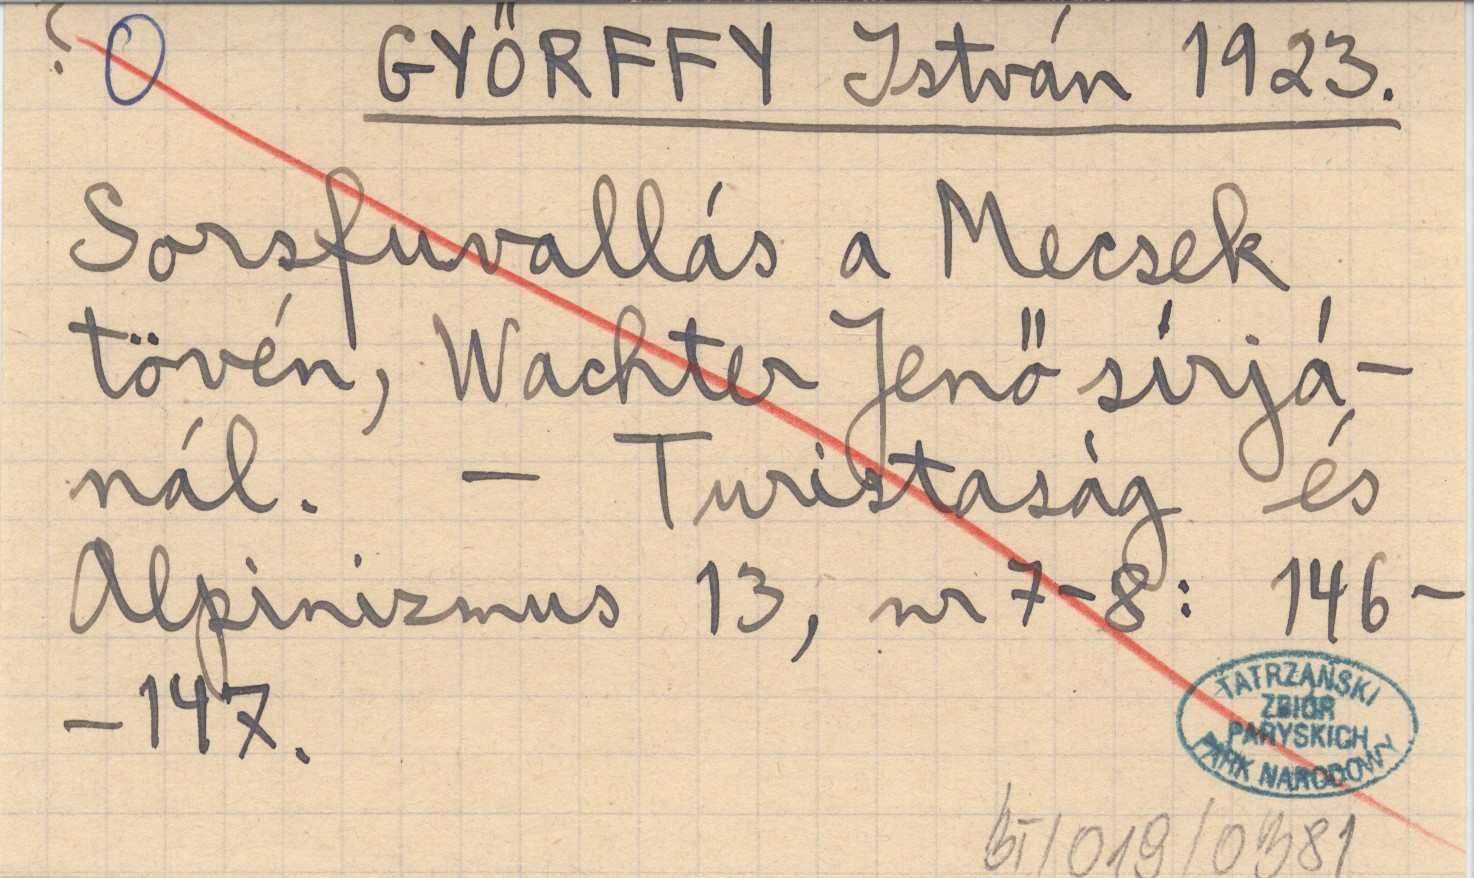 ? O GYŐRFFY István 1923.
Sorsfuvallás a Mecsek
tövén, Wachter Jenő sírjá-
nál. – Turistaság és
Alpinizmus 13, nr 7-8: 146-
-147.
TATRZAŃSKI
ZBIÓR
PARYSKICH
PARK NARODOWY
BI/019/0381